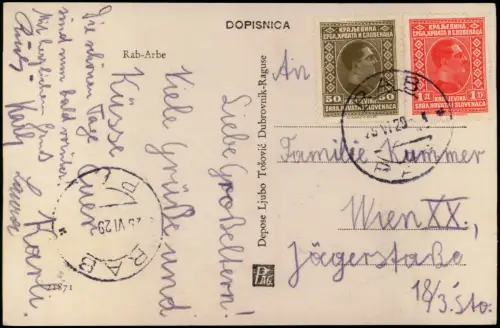 DOPISNICA
Rab-Arbe
Die schönen Tage
sind nun bald vorüber
Mit herzlichen Gruß
Karl
Liebe Großeltern!
Viele Grüße und
Küsse Euer
Karli.
Laura
Depose Ljubo Tošović Dubrovnik-Raguse
22871
КРАЉЕВИНА
СРБА, ХРВАТА И СЛОВЕНАЦА
50 50
KRALJEVINA
SRBA, HRVATA I SLOVENACA
КРАЉЕВИНА
СРБА, ХРВАТА И СЛОВЕНАЦА
1 Д 1 D
KRALJEVINA
SRBA, HRVATA I SLOVENACA
RAB
25 VI 29
RAB
25 VI 29
An
Familie Kummer
Wien XX,
Jägerstraße
18/3. Sto.